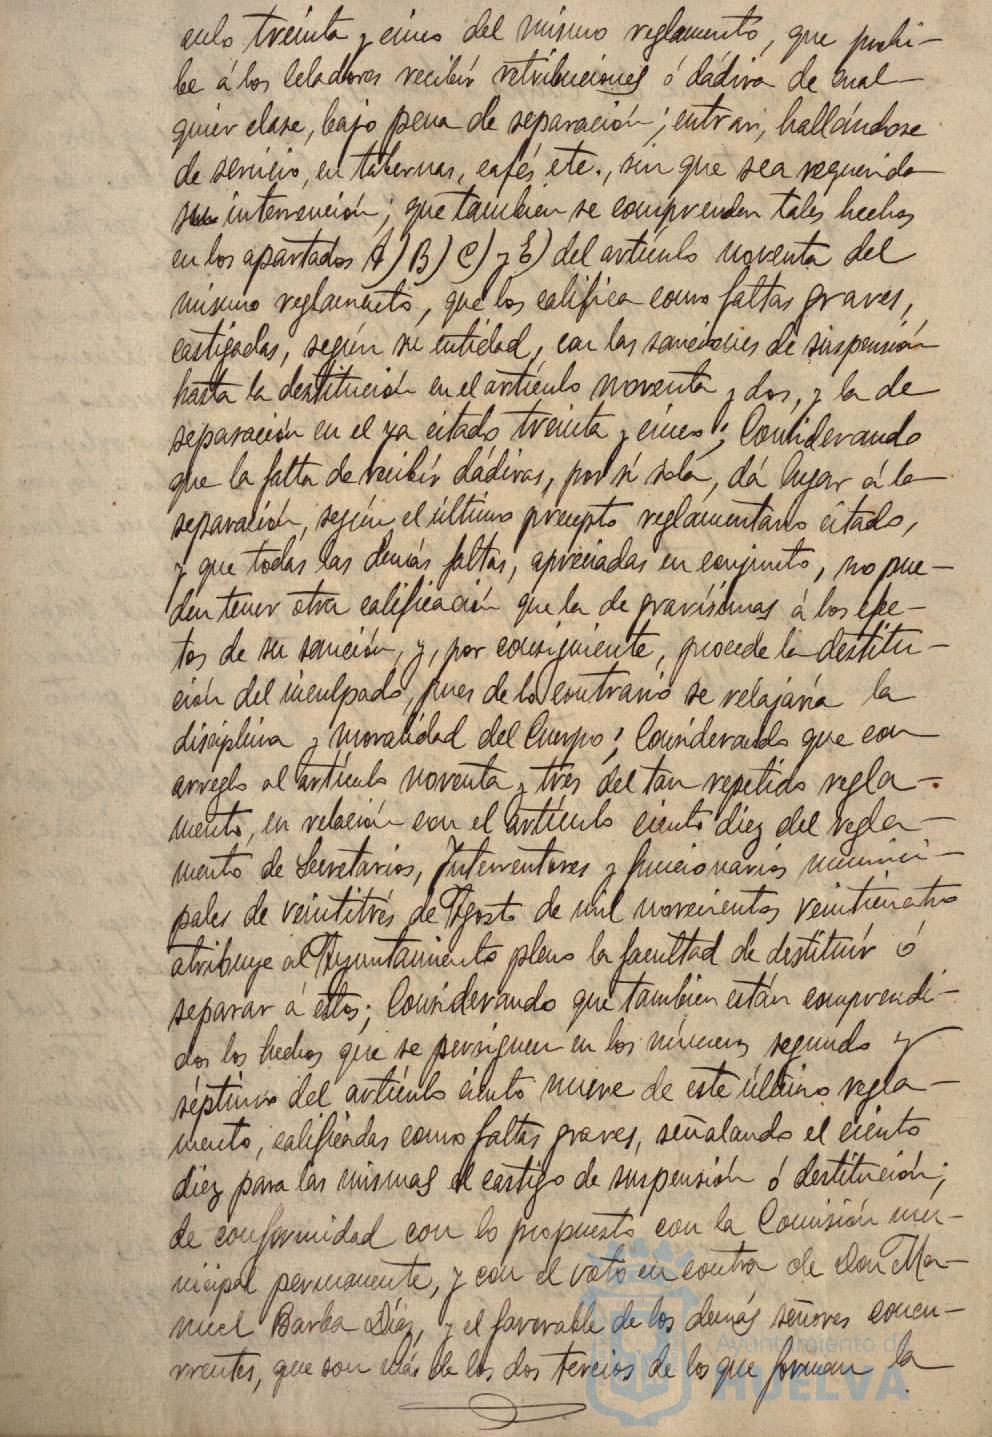 culo treinta y cinco del mismo reglamento, que prohi-
be á los Celadores recibir retribuciones ó dádiva de cual-
quier clase, bajo pena de separación; entrar, hallándose
de servicio, en tabernas, cafés, etc., sin que sea requerida
su intervención; que tambien se comprenden tales hechos
en los apartados A) B) C) y E) del artículo noventa del
mismo reglamento, que los califica como faltas graves,
castigadas, según su entidad, con las sanciones de suspensión
hasta la destitución en el artículo noventa y dos, y la de
separación en el ya citado treinta y cinco; Considerando
que la falta de recibir dádivas, por sí sola, dá lugar á la
separación, según el último precepto reglamentario citado,
y que todas las demás faltas, apreciadas en conjunto, no pue-
den tener otra calificación que la de gravísimas á los efec-
tos de su sanción, y, por consiguiente, procede la destitu-
ción del inculpado, pues de lo contrario se relajaría la
disciplina y moralidad del Cuerpo; Considerando que con
arreglo al artículo noventa y tres del tan repetido regla-
mento, en relación con el artículo ciento diez del regla-
mento de Secretarios, Interventores y funcionarios munici-
pales de veintitrés de Agosto de mil novecientos veinticuatro
atribuye al Ayuntamiento pleno la facultad de destituir ó
separar á estos; Considerando que tambien están comprendi-
dos los hechos que se persiguen en los números segundo y
séptimo del artículo ciento nueve de este último regla-
mento, calificadas como faltas graves, señalando el ciento
diez para las mismas el castigo de suspensión ó destitución;
de conformidad con lo propuesto con la Comisión mu-
nicipal permanente, y con el voto en contra de Don Ma-
nuel Barba Díaz, y el favorable de los demás señores concu-
rrentes, que son más de los dos tercios de los que forman la
Ayuntamiento de
HUELVA